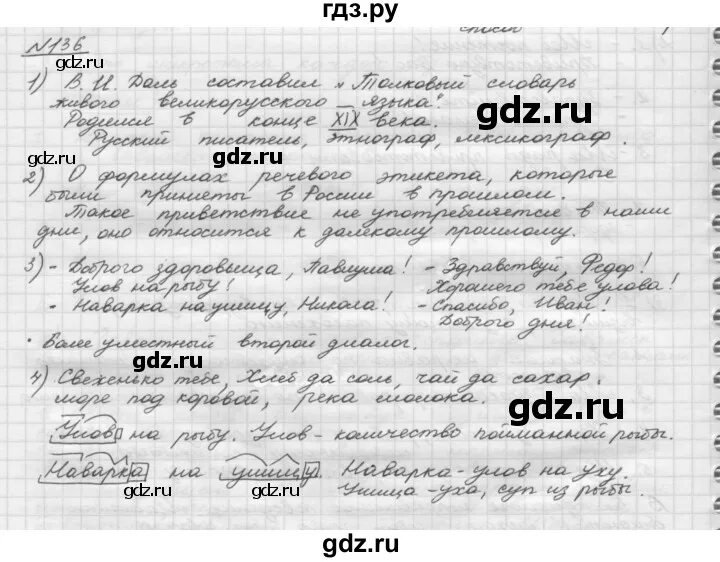 гдз.ру
№136
1) В. И. Даль составил „Толковый словарь
живого великорусского языка".
Родился в конце XIX века.
Русский писатель, этнограф, лексикограф.
2) О формулах речевого этикета, которые
были приняты в России в прошлом.
Такое приветствие не употребляется в наши
дни, оно относится к далекому прошлому.
3) - Доброго здоровьица, Павлуша! - Здравствуй, Федор!
Улов на рыбу! Хорошего тебе улова!
- Наварка на ушицу, Никола! - Спасибо, Иван!
Доброго дня!
· Более уместный второй диалог.
4) Свеженько тебе, Хлеб да соль, чай да сахар.
море под коровой, река молока.
Улов на рыбу. Улов - количество пойманной рыбы.
Наварка на ушицу. Наварка - улов на уху.
Ушица - уха, суп из рыбы.
gdz.ru
gdz.ru
gdz.ru
gdz.ru
gdz.ru
gdz.ru
gdz.ru
gdz.ru
gdz.ru
gdz.ru
gdz.ru
gdz.ru
gdz.ru
gdz.ru